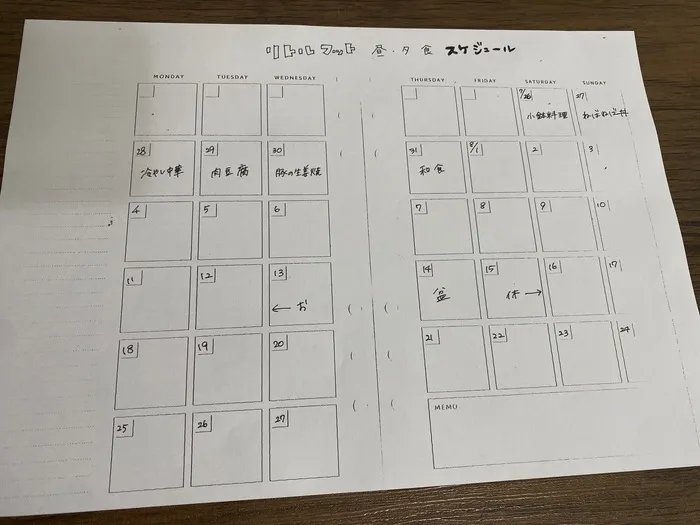 リトルフット 昼・夕食 スケジュール
MONDAY TUESDAY WEDNESDAY THURSDAY FRIDAY SATURDAY SUNDAY
7/26 27
小鉢料理 ねばねば丼
28 29 30 31 8/1 2 3
冷やし中華 肉豆腐 豚の生姜焼 和食
4 5 6 7 8 9 10
11 12 13 14 15 16 17
← お 盆 休 →
18 19 20 21 22 23 24
25 26 27
MEMO